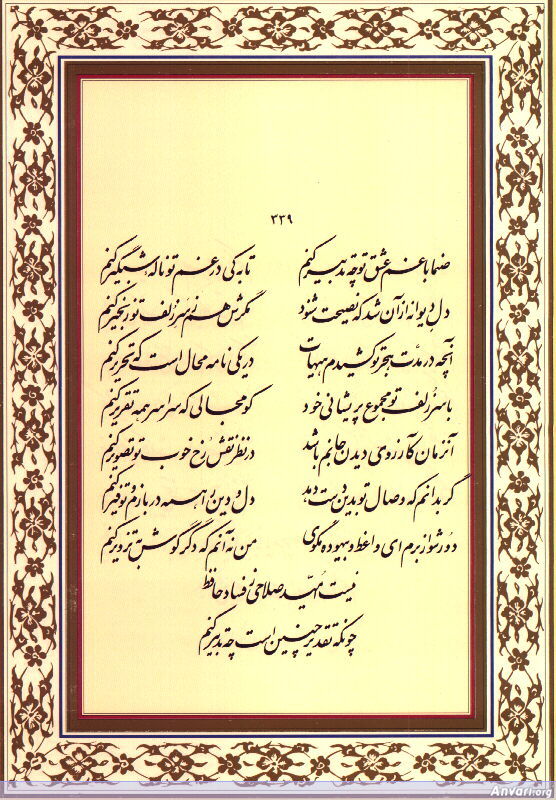 ۳۳۹
صنما با غم عشق تو چه تدبیر کنم تا به کی در غم تو ناله شبگیر کنم
دل دیوانه از آن شد که نصیحت شنود مگرش هم ز سر زلف تو زنجیر کنم
آنچه در مدت هجر تو کشیدم هیهات در یکی نامه محال است که تحریر کنم
با سر زلف تو مجموع پریشانی خود کو مجالی که سراسر همه تقریر کنم
آنزمان کارزوی دیدن جانم باشد در نظر نقش رخ خوب تو تصویر کنم
گر بدانم که وصال تو بدین دست دهد دل و دین را همه در بازم و توفیر کنم
دور شو از برم ای واعظ و بیهوده مگوی من نه آنم که دگر گوش بتزویر کنم
نیست امید صلاحی ز فساد حافظ
چونکه تقدیر چنین است چه تدبیر کنم
Anvari.org